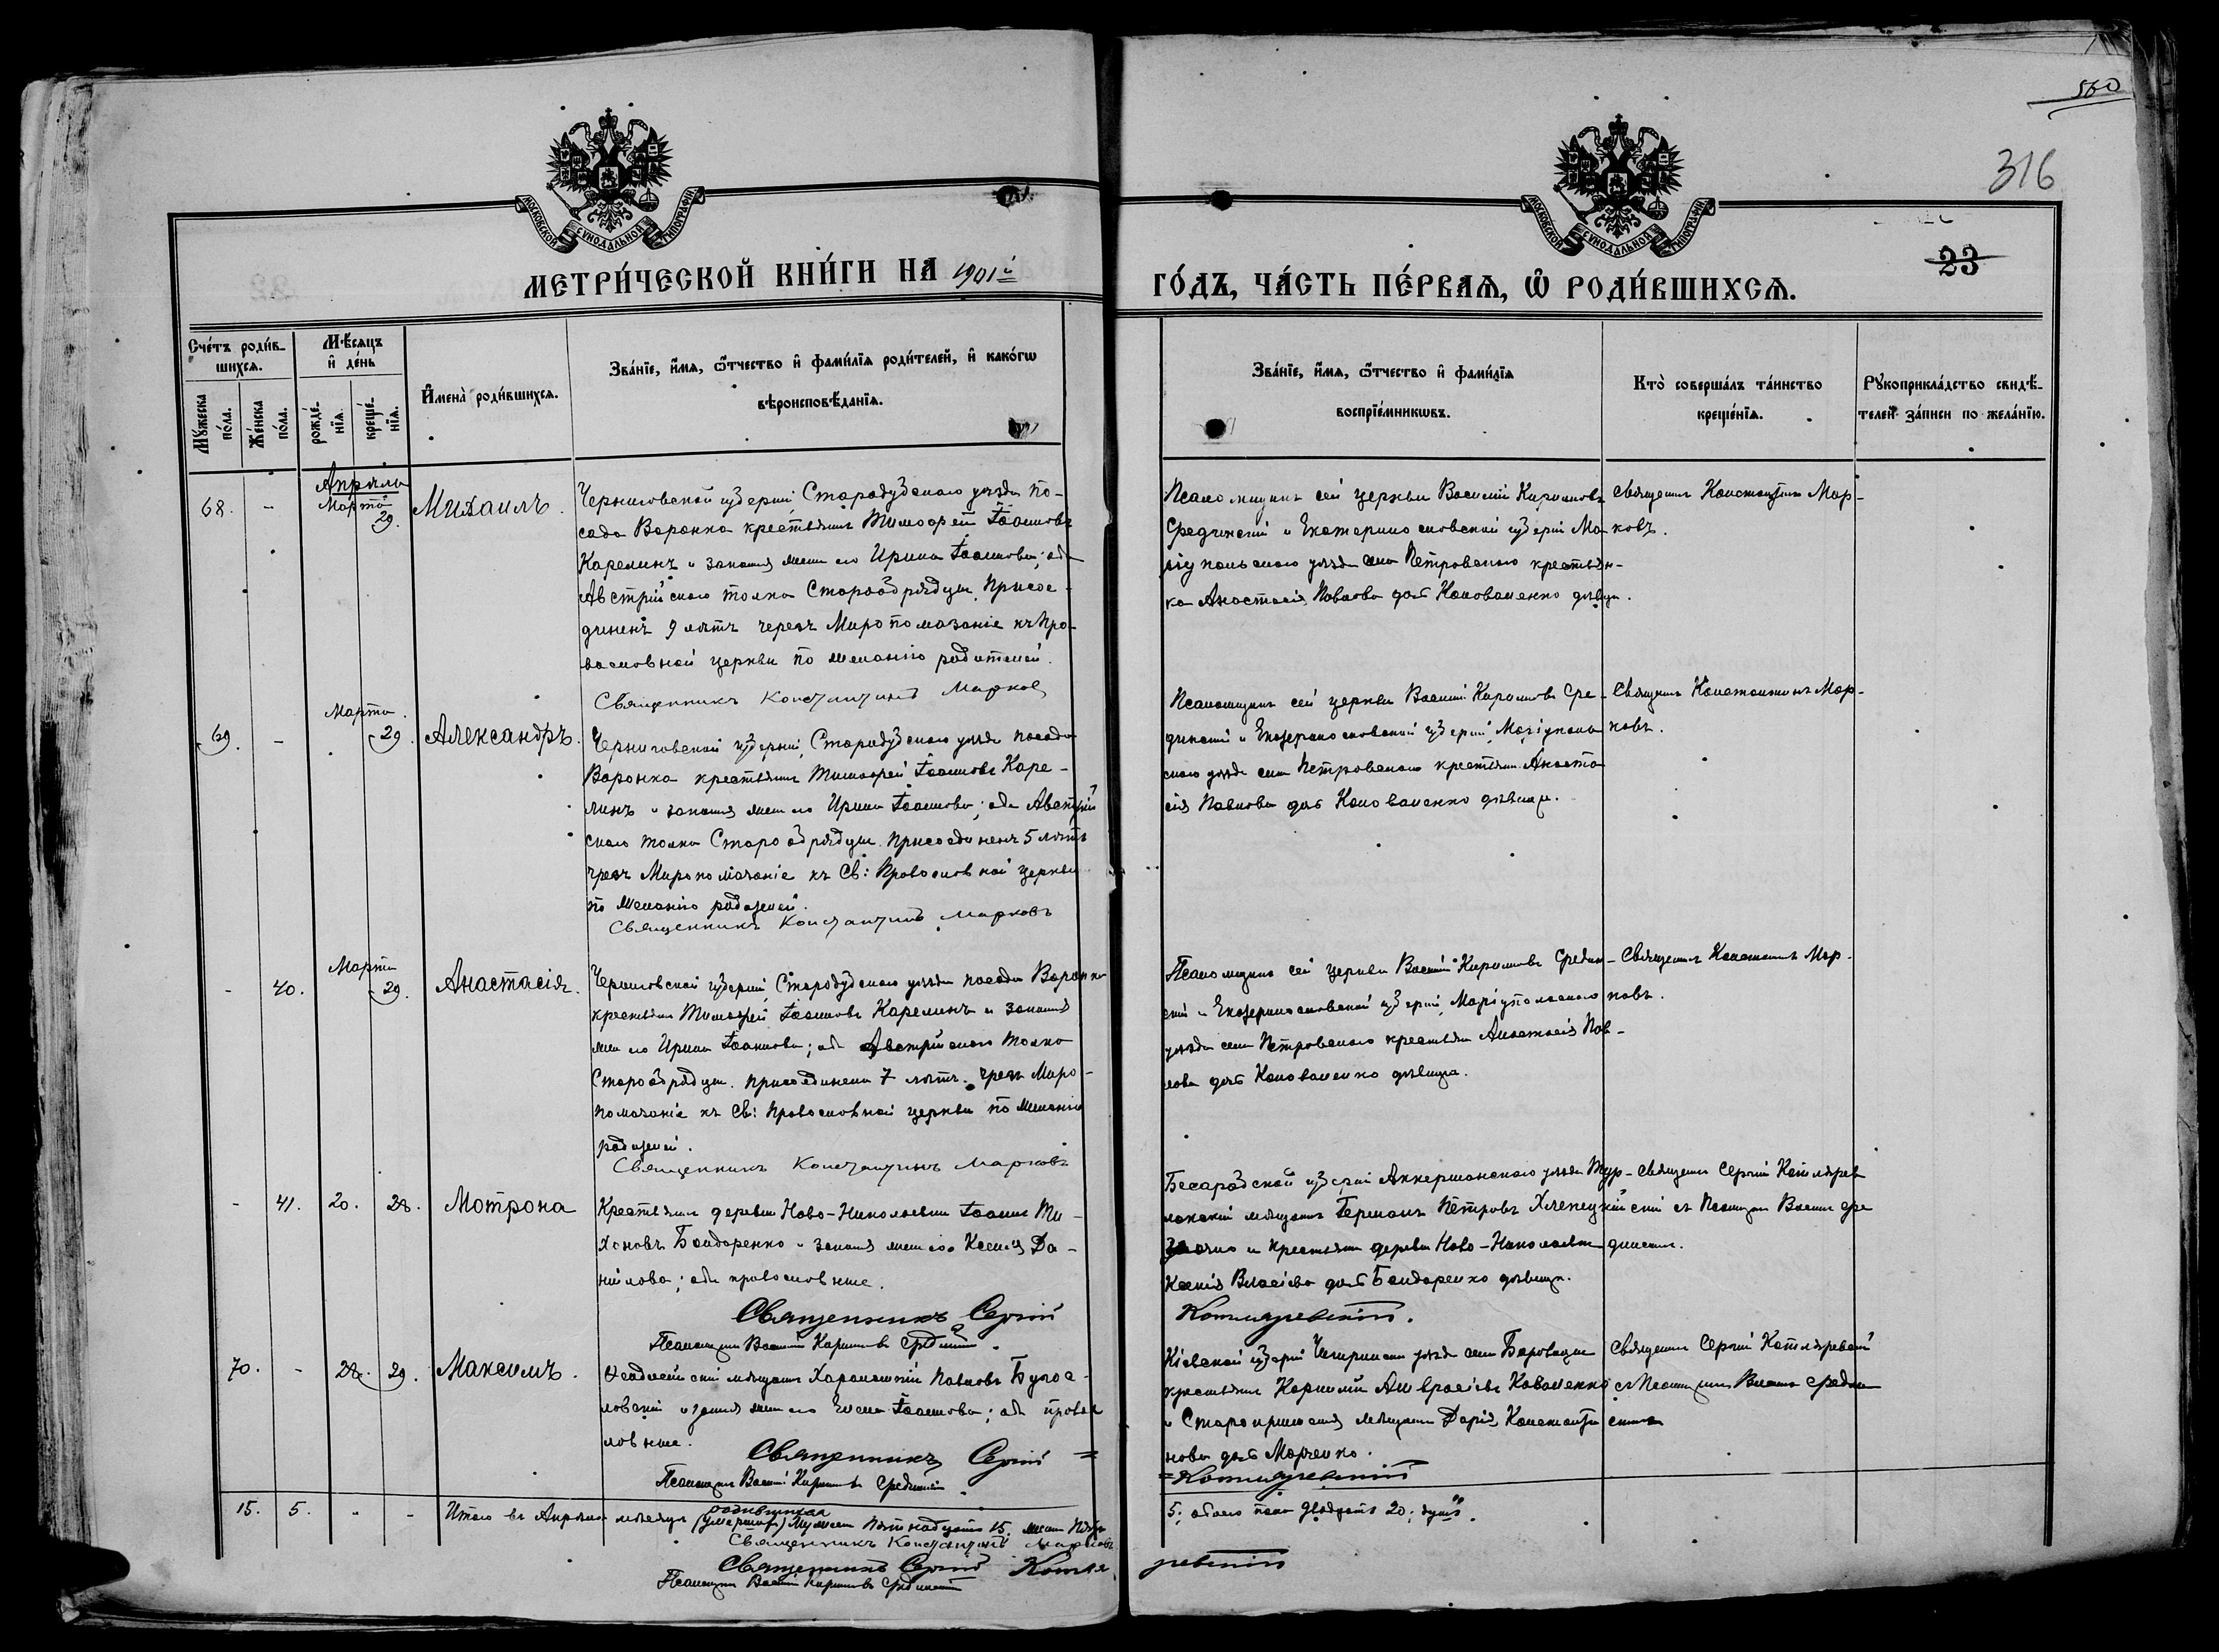 560
316
23
МОСКОВСКОЙ СУНОДАЛЬНОЙ ТИПОГРАФІИ
МОСКОВСКОЙ СУНОДАЛЬНОЙ ТИПОГРАФІИ
МЕТРИ́ЧЕСКОЙ КНИ́ГИ НА 1901й
ГО́ДЪ, ЧА́СТЬ ПЕ́РВАѦ, Ѡ РОДИ́ВШИХСѦ.
Сче́тъ роди́в-
шихсѧ.
Мꙋ́жеска по́ла.
Же́нска по́ла.
Мѣ́сѧцъ
и҆ де́нь
рожде́-
нїѧ.
креще́-
нїѧ.
И҆мена̀ роди́вшихсѧ.
Зва́нїе, и҆́мѧ, ѻ҆́тчество и҆ фами́лїѧ роди́телей, и҆ како́гѡ
вѣроисповѣ́данїѧ.
Зва́нїе, и҆́мѧ, ѻ҆́тчество и҆ фами́лїѧ
воспрїе́мникѡвъ.
Кто̀ соверша́лъ та́инство
креще́нїѧ.
Рꙋкоприкла́дство свидѣ́-
телей за́писи по жела́нїю.
68. - Апрѣль
Марта
29.
Михаилъ.
Черниговской губерніи, Стародубскаго уѣзда по-
сада Воронка крестьянинъ Тимофей Іоанновъ
Карелинъ и законная жена его Ирина Іоаннова; оба
Австрійскаго толка Старообрядцы. Присое-
диненъ 9 лѣтъ черезъ Миропомазаніе къ Пра-
вославной церкви по желанію родителей.
Священникъ Константинъ Марковъ
Псаломщикъ сей церкви Василій Кирилловъ
Срединскій и Екатеринославской губерніи Ма-
ріупольскаго уѣзда села Петровскаго крестьян-
ка Анастасія Павлова дочь Коноваленко дѣвица.
Священникъ Константинъ Мар-
ковъ.
69. - Марта
29.
Александръ.
Черниговской губерніи, Стародубскаго уѣзда посада
Воронка крестьянинъ Тимофей Іоанновъ Каре-
линъ и законная жена его Ирина Іоаннова; оба Австрій
скаго толка Старообрядцы. Присоединенъ 5 лѣтъ
чрезъ Миропомазаніе къ Св: Православной церкви
по желанію родителей.
Священникъ Константинъ Марковъ
Псаломщикъ сей церкви Василій Кирилловъ Сре-
динскій и Екатеринославской губерніи, Маріуполь
скаго уѣзда села Петровскаго крестьянка Анаста
сія Павлова дочь Коноваленко дѣвица.
Священникъ Константинъ Мар-
ковъ.
- 40. Марта
29.
Анастасія.
Черниговской губерніи, Стародубскаго уѣзда посада Воронка
крестьянинъ Тимофей Іоанновъ Карелинъ и законная
жена его Ирина Іоаннова; оба Австрійскаго толка
Старообрядцы. присоединена 7 лѣтъ. чрезъ Миро-
помазаніе къ Св: Православной церкви по желанію
родителей.
Священникъ Константинъ Марковъ
Псаломщикъ сей церкви Василій Кирилловъ Средин-
скій и Екатеринославской губерніи, Маріупольскаго
уѣзда села Петровскаго крестьянка Анастасія Пав-
лова дочь Коноваленко дѣвица.
Священникъ Константинъ Мар-
ковъ.
- 41. 20. 28.
Мотрона
Крестьянинъ деревни Ново-Николаевки Іоаннъ Ти-
хоновъ Бондаренко и законная жена его Ксенія Да-
нилова; оба православные.
Священникъ Сергій
Котляревскій.
Псаломщикъ Василій Кирилловъ Срединскій.
Бессарабской губерніи Аккерманскаго уѣзда
мѣщанинъ Германъ Петровъ
и крестьянка деревни Ново-Николаевки
Ксенія Власіева дочь Бондаренко дѣвица.
Священникъ Сергій Котлярев
скій съ Псаломщикомъ Василіемъ Сре
динскимъ.
70. - 28. 29.
Максимъ.
мѣщанинъ Харлампій Павловъ Бугос-
ловскій и законная жена его Елена Іоаннова; оба правос
лавные.
Священникъ Сергій =
= Котляревскій
Псаломщикъ Василій Кирилловъ Срединскій.
Кіевской губерніи Чигиринскаго уѣзда села Боровицы
крестьянинъ Корнилій Амвросіевъ Коваленко
и мѣщанка Дарія Константи
нова дочь Марченко.
Священникъ Сергій Котляревскій
съ Псаломщикомъ Василіемъ Средин
скимъ
15. 5. " -
Итого въ Апрѣлѣ мѣсяцѣ родившихся
(умершихъ) Мужеска пятнадцать 15. женска пять
5; обоего пола двадцать 20; душъ.
Священникъ Константинъ Марковъ
Священникъ Сергій Котля
ревскій
Псаломщикъ Василій Кирилловъ Срединскій